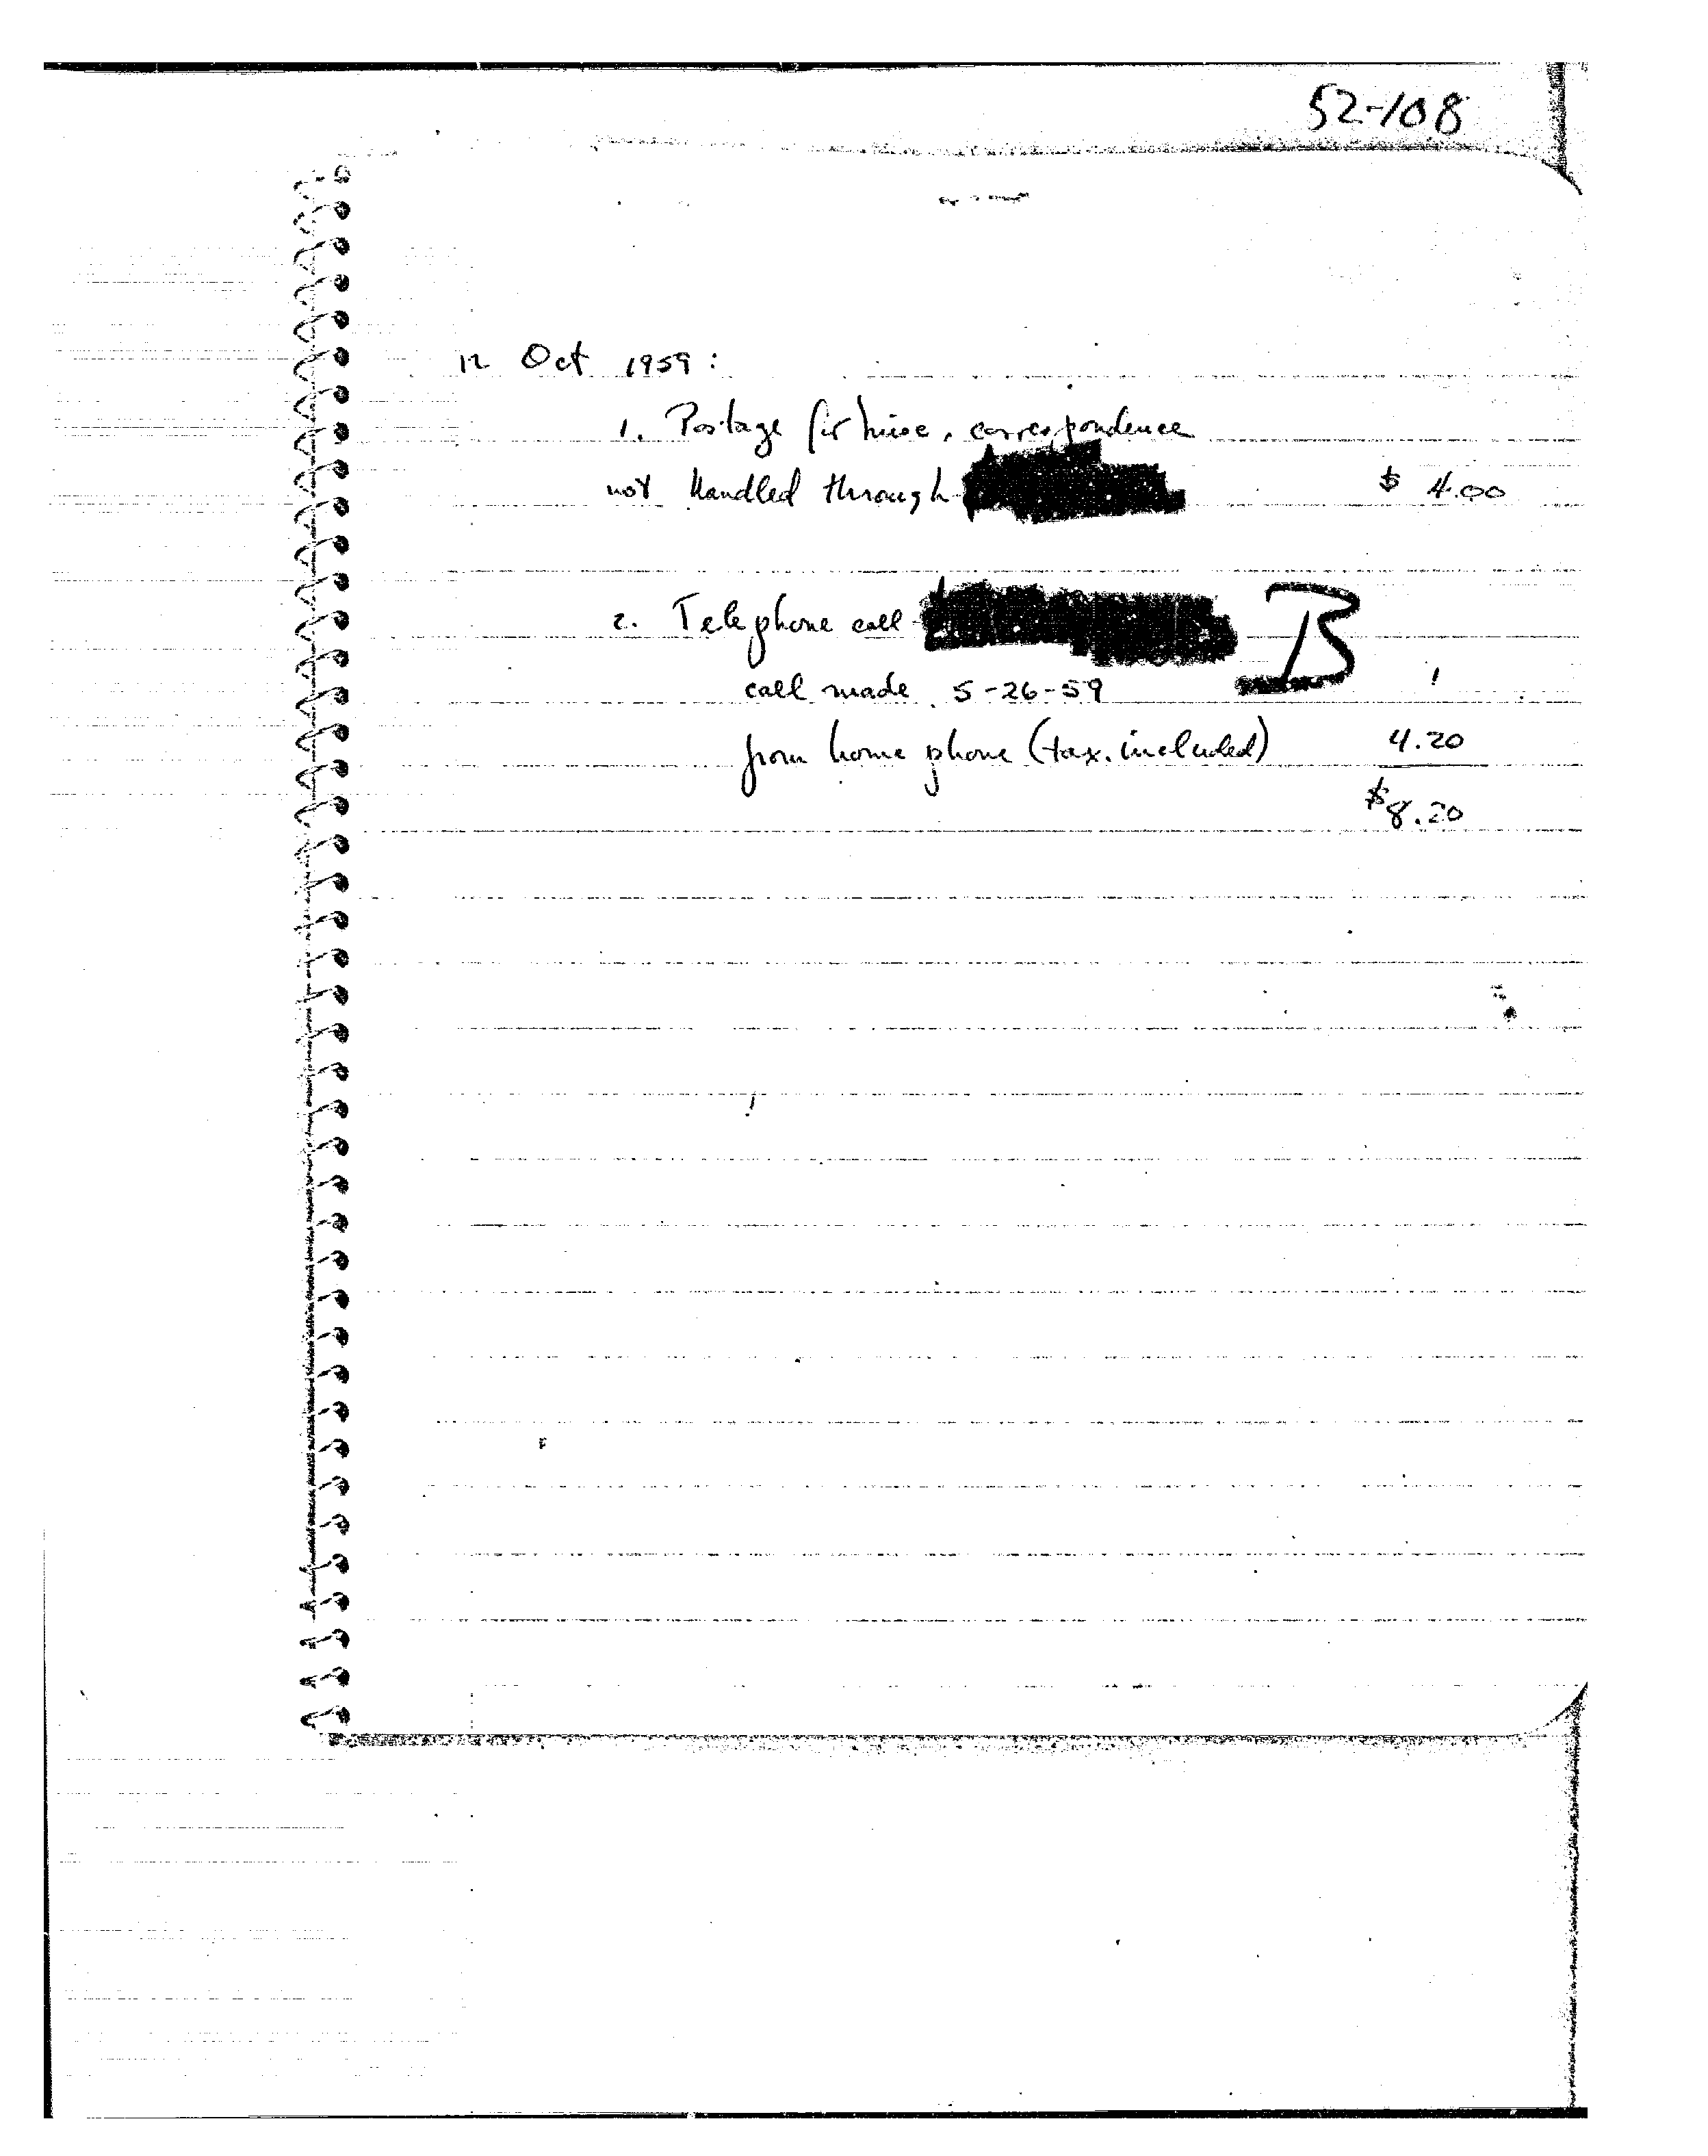 52-108
12 Oct 1959:
1. Postage for misc. correspondence
not handled through $ 4.00
2. Telephone call B
call made 5-26-59
from home phone (tax included) 4.20
$8.20